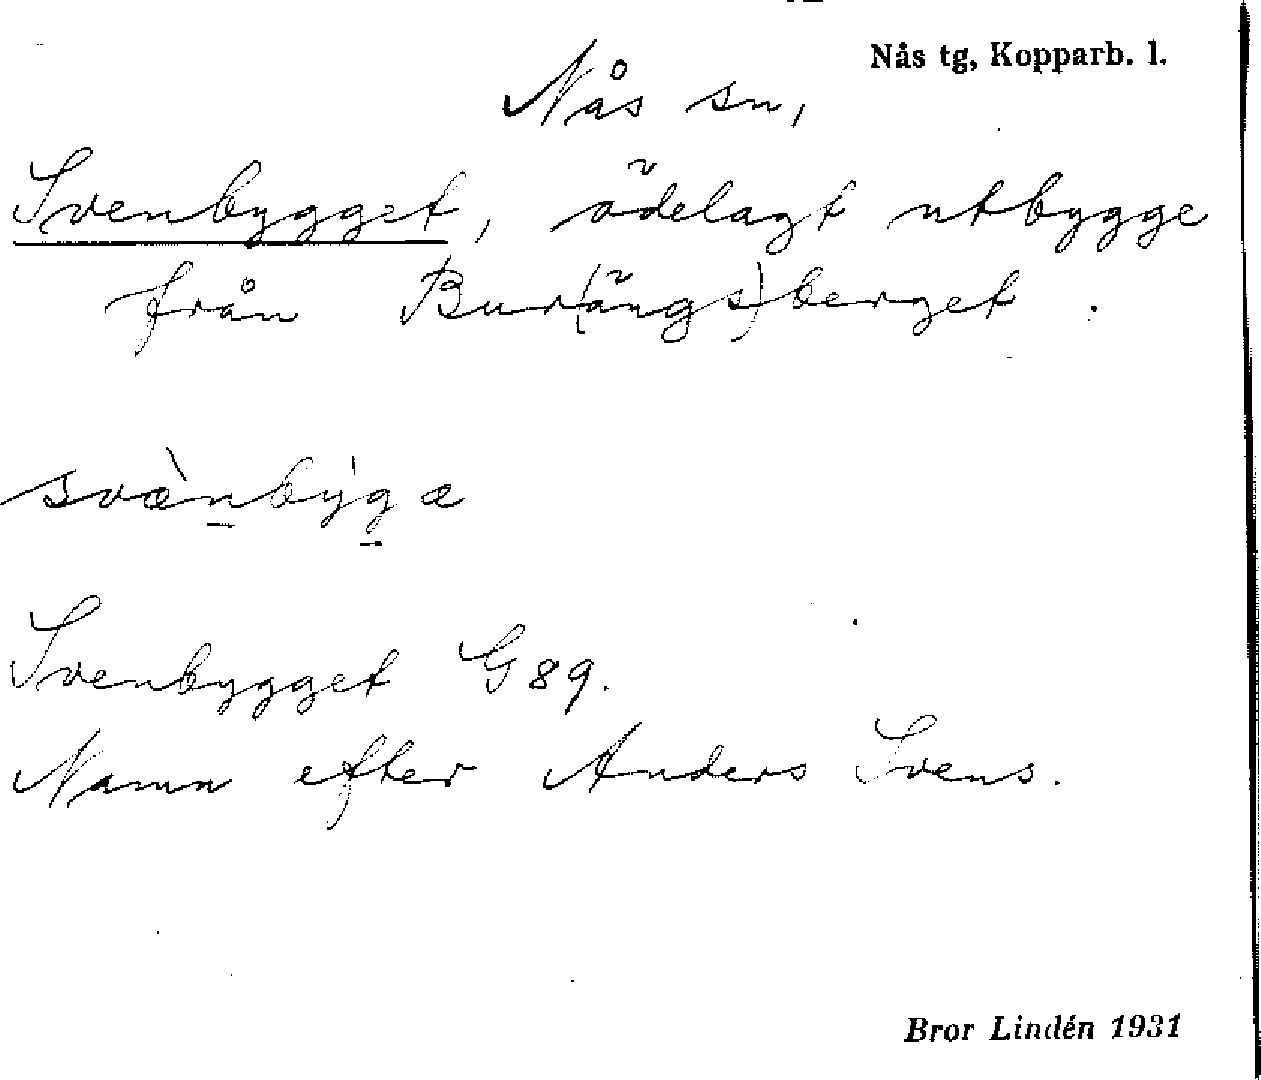 Nås tg, Kopparb. l.
Nås sn,
Svenbygget, ödelagt utbygge
från Bur(ängs)berget.
svæ̀nby̍gæ
Svenbygget G89.
Namn efter Anders Svens.
Bror Lindén 1931